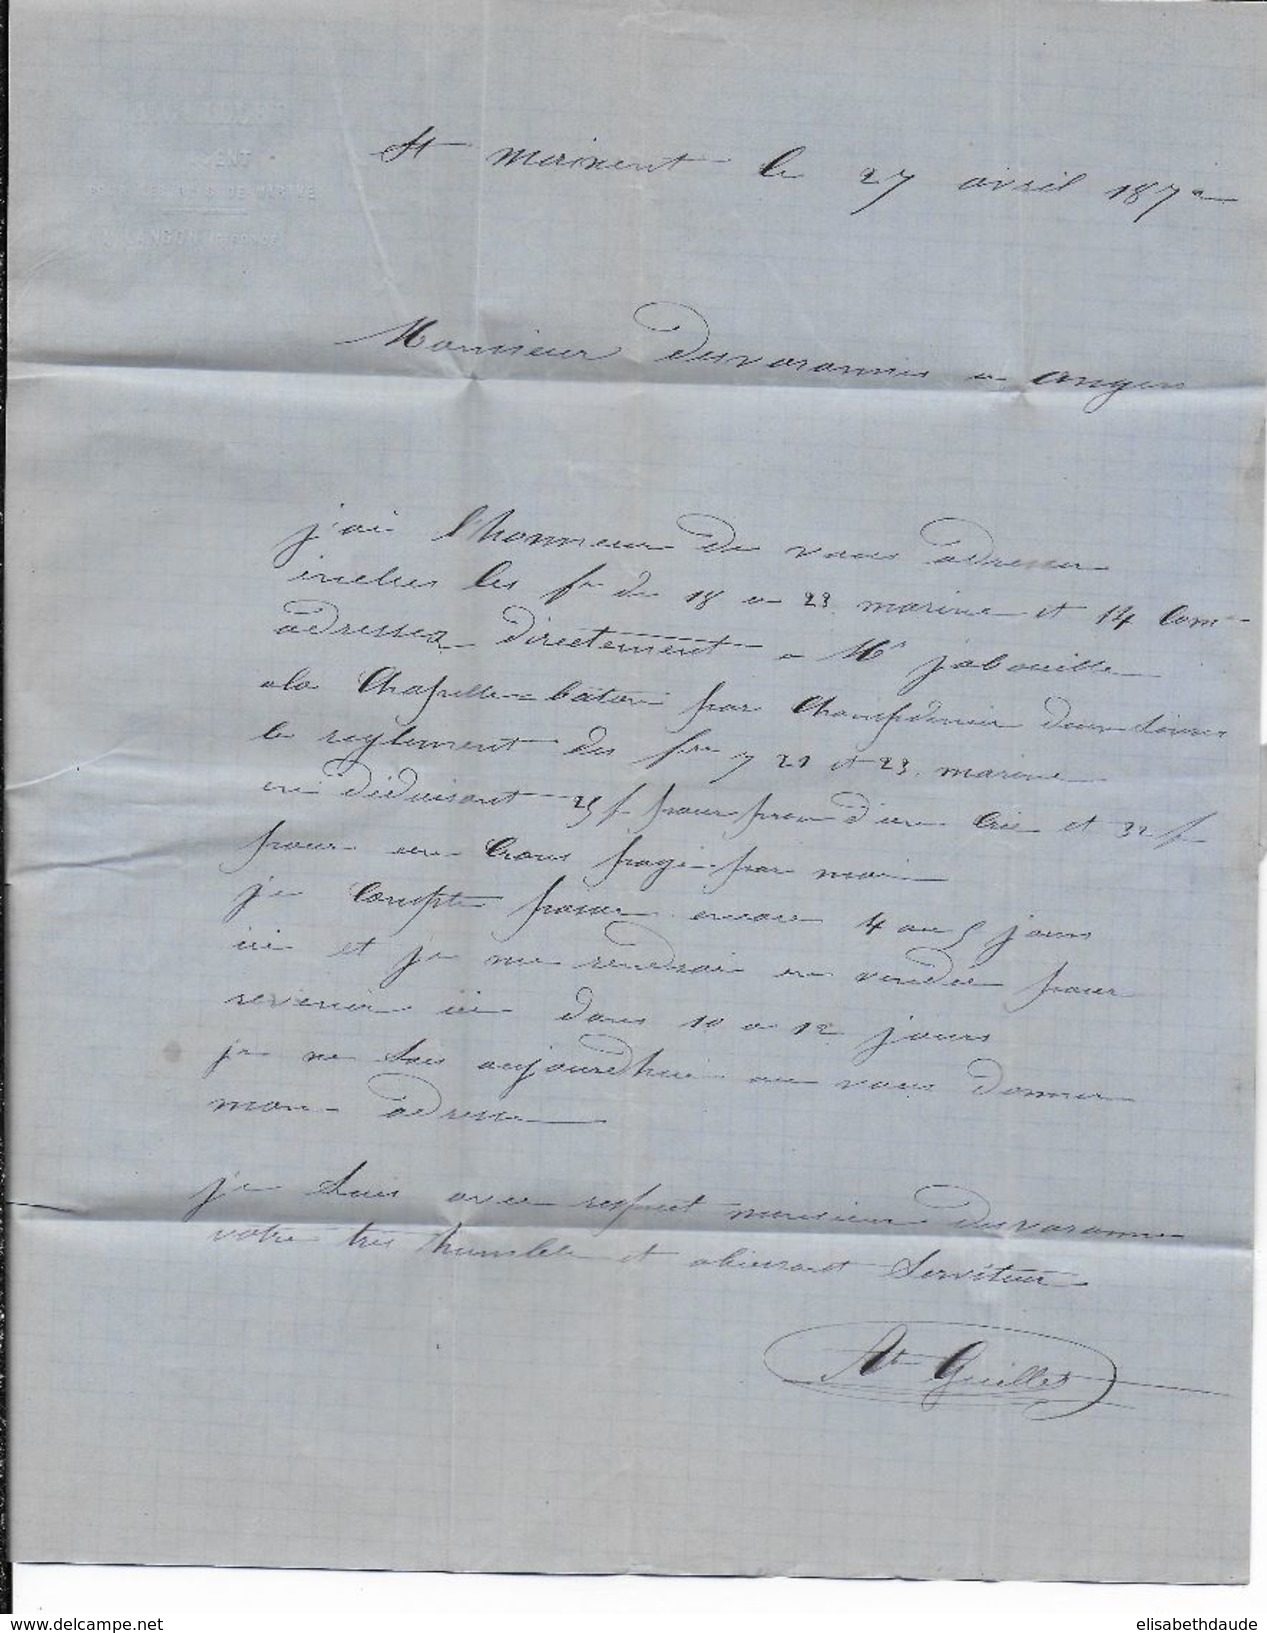 AGENT
POUR LES BOIS DE MARINE
A LANGON (GIRONDE)
St maixent le 27 avril 1872
Monsieur Desvarannes a angers
j'ai l'honneur de vous adresser
inclus les fres de 18 a 23 marine et 14 Comce
adressez directement a Mr jabouille
a la Chapelle-bâton par Champdenier deux Sèvres
le reglement des fres 7 21 et 23 marine
en déduisant 25 f pour prix d'une Crie et 32 f
pour un Crous payé par moi
je Compte passer encore 4 ou 5 jours
ici et je me rendrai en vendée pour
revenir ici dans 10 a 12 jours
je ne Sais aujourd'hui ou vous donner
mon adresse
je Suis avec respect monsieur Desvaranne
votre très humble et obéissant Serviteur
At Guillet
elisabethdaude